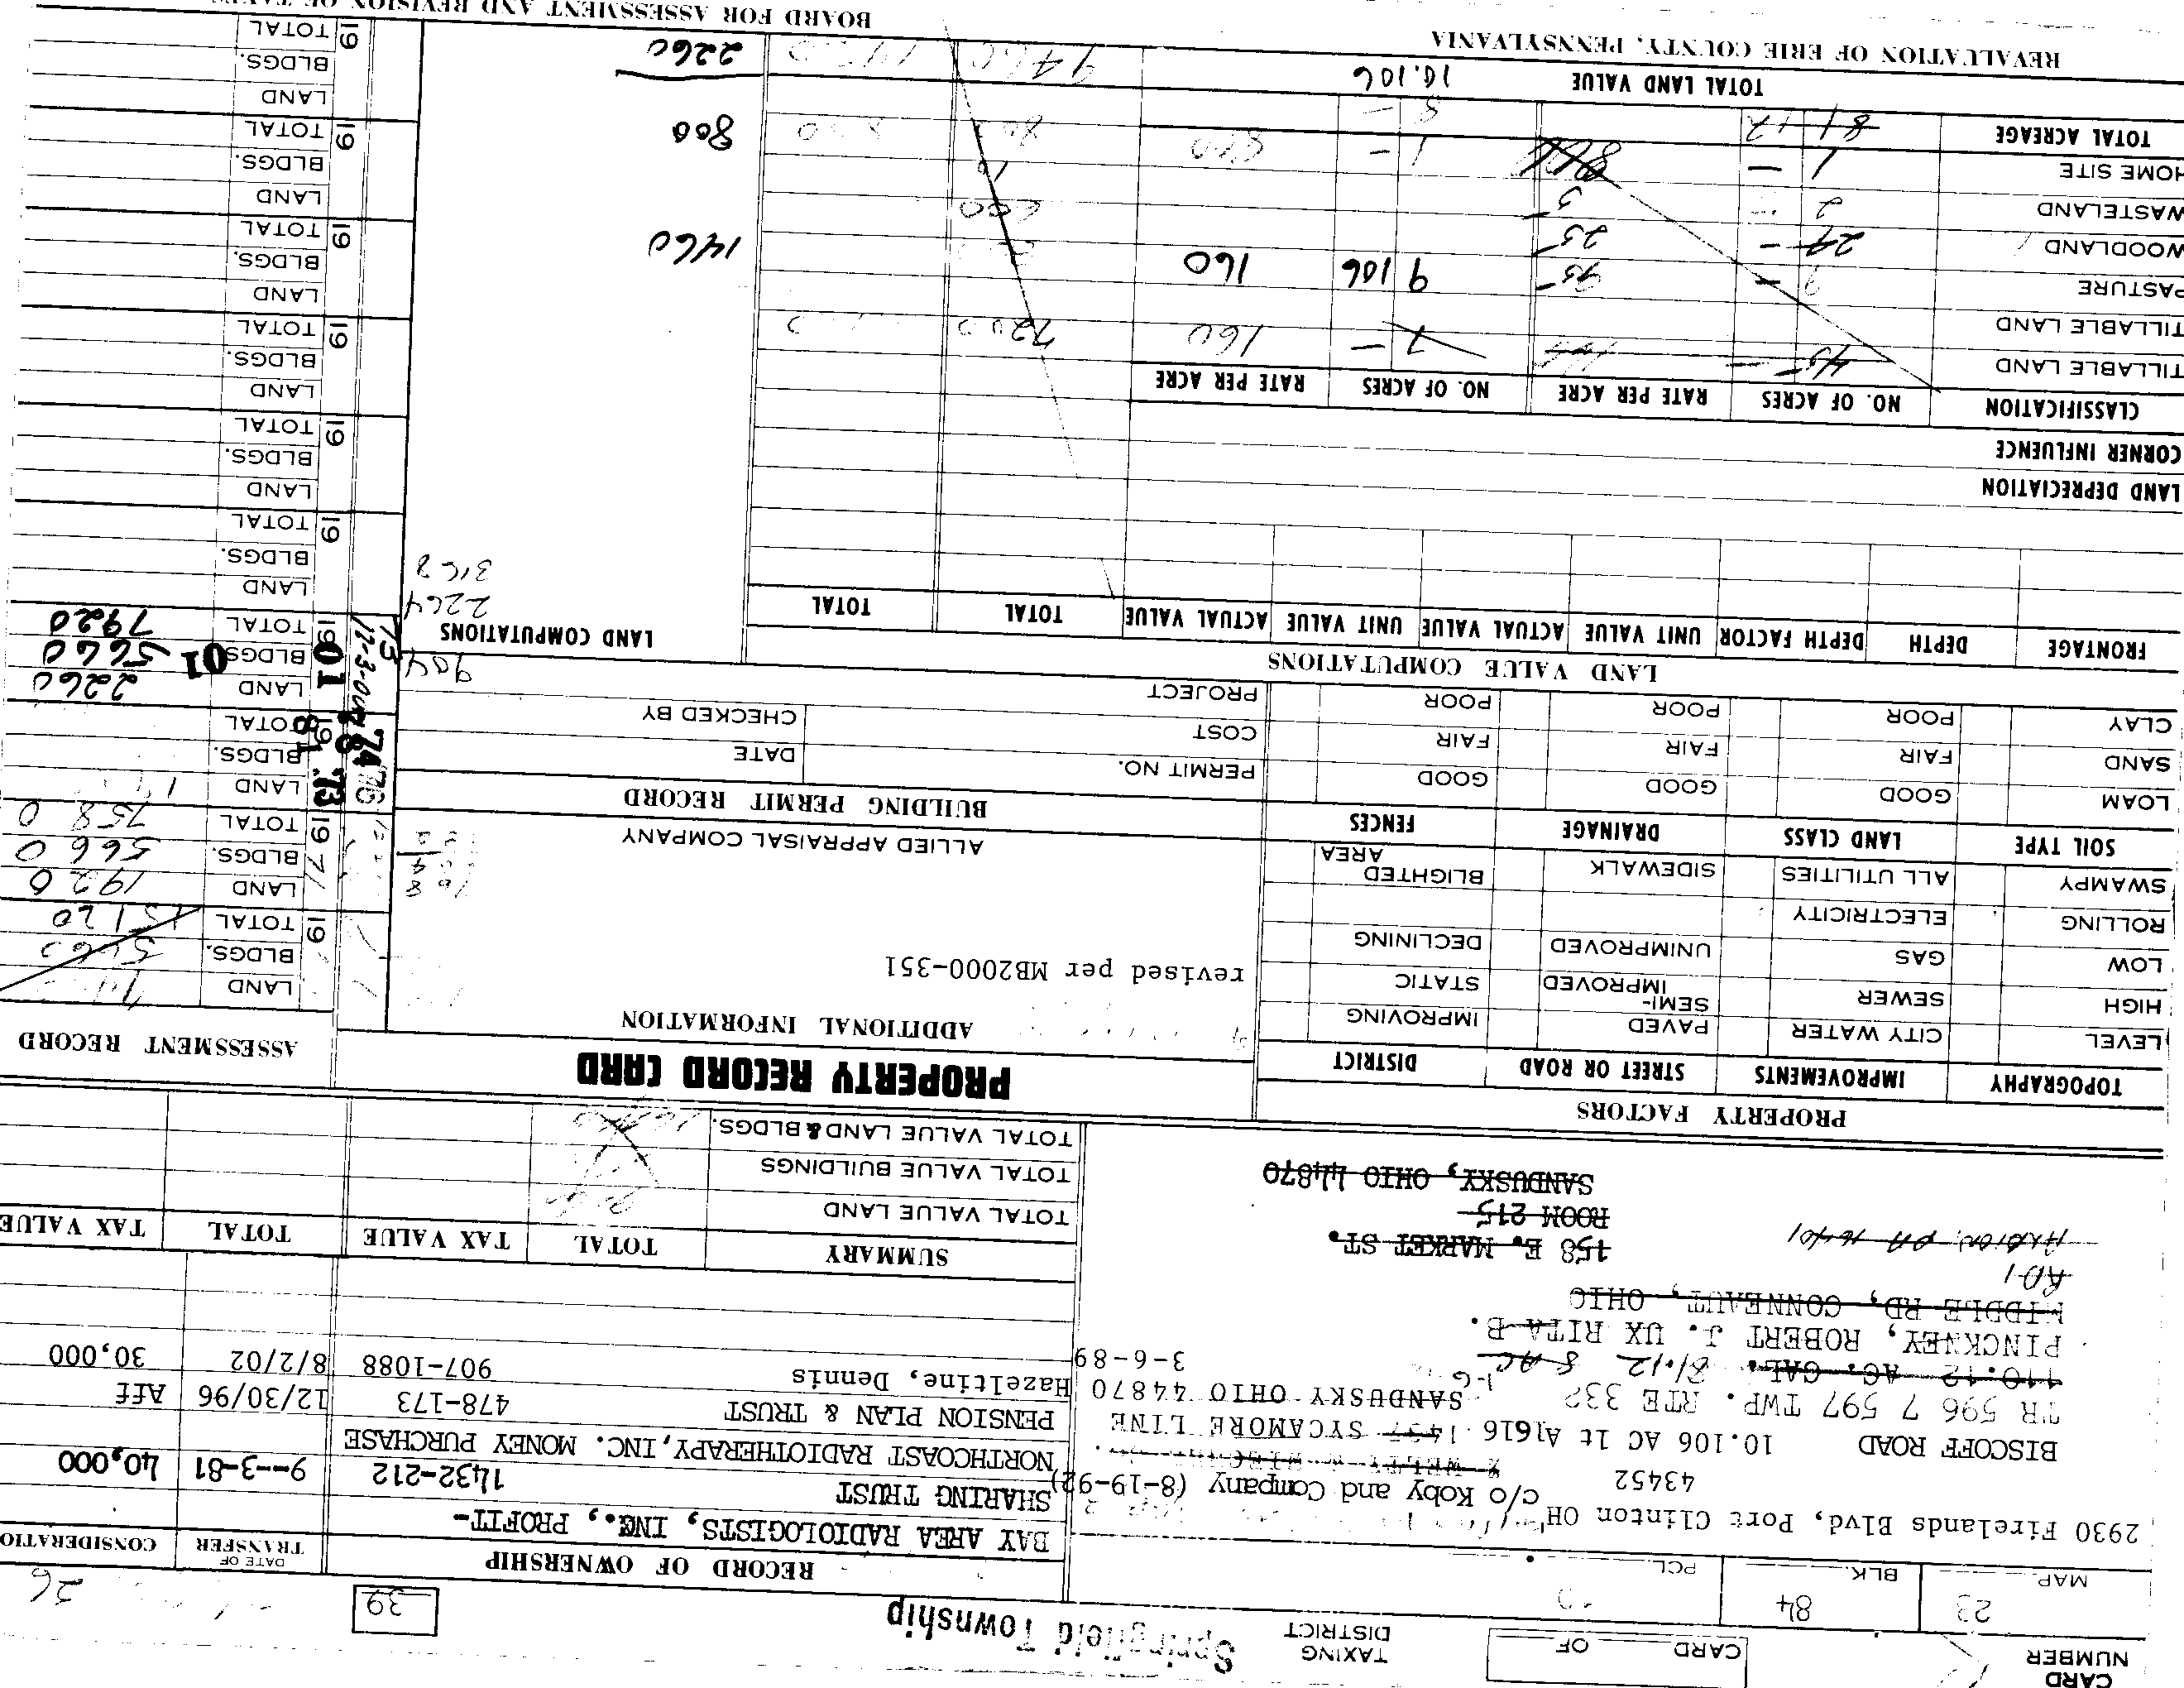 CARD NUMBER
CARD OF
TAXING DISTRICT
Springfield Township
39
26
MAP 23
BLK. 84
PCL.
2930 Firelands Blvd, Port Clinton OH
43452
c/o Koby and Company (8-19-92)
BISCOFF ROAD 10.106 AC 1t A1616 1437 SYCAMORE LINE
TR 596 7 597 TWP. RTE 332 SANDUSKY OHIO 44870
110.12 AC. CAL. 81.12 8 AC
3-6-89
PINCKNEY, ROBERT J. UX RITA B.
MIDDLE RD, CONNEAUT, OHIO
RD 1
ALBION, PA 16401
158 E. MARKET ST.
ROOM 215
SANDUSKY, OHIO 44870
RECORD OF OWNERSHIP
DATE OF TRANSFER
CONSIDERATIO
BAY AREA RADIOLOGISTS, INC., PROFIT-
SHARING TRUST 1432-212 9--3-81 40,000
NORTHCOAST RADIOTHERAPY, INC. MONEY PURCHASE
PENSION PLAN & TRUST 478-173 12/30/96 Aff
Hazeltine, Dennis 907-1088 8/2/02 30,000
SUMMARY TOTAL TAX VALUE TOTAL TAX VALUE
TOTAL VALUE LAND
TOTAL VALUE BUILDINGS
TOTAL VALUE LAND & BLDGS.
PROPERTY FACTORS
TOPOGRAPHY IMPROVEMENTS STREET OR ROAD DISTRICT
LEVEL CITY WATER PAVED IMPROVING
HIGH SEWER SEMI-IMPROVED STATIC
LOW GAS UNIMPROVED DECLINING
ROLLING ELECTRICITY
SWAMPY ALL UTILITIES SIDEWALK BLIGHTED AREA
SOIL TYPE LAND CLASS DRAINAGE FENCES
LOAM GOOD GOOD GOOD
SAND FAIR FAIR FAIR
CLAY POOR POOR POOR
PROPERTY RECORD CARD
ADDITIONAL INFORMATION
revised per MB2000-351
ALLIED APPRAISAL COMPANY
BUILDING PERMIT RECORD
PERMIT NO. DATE
COST CHECKED BY
PROJECT
904
ASSESSMENT RECORD
19 LAND
BLDGS. 5660
TOTAL 15120
1971 LAND 1920
BLDGS. 5660
TOTAL 7580
19 LAND
BLDGS.
TOTAL
74 76
73
81
12-3-01
73
1901 LAND 2260
BLDGS. 5660 01
TOTAL 7920
19 LAND
BLDGS.
TOTAL
19 LAND
BLDGS.
TOTAL
19 LAND
BLDGS.
TOTAL
19 LAND
BLDGS.
TOTAL
19 LAND
BLDGS.
TOTAL
19 LAND
BLDGS.
TOTAL
LAND VALUE COMPUTATIONS
FRONTAGE DEPTH DEPTH FACTOR UNIT VALUE ACTUAL VALUE UNIT VALUE ACTUAL VALUE TOTAL TOTAL
LAND COMPUTATIONS
2264
3168
LAND DEPRECIATION
CORNER INFLUENCE
CLASSIFICATION NO. OF ACRES RATE PER ACRE NO. OF ACRES RATE PER ACRE
TILLABLE LAND 45 - 7 - 160 7200
TILLABLE LAND
PASTURE 9 - 95- 9 106 160 1460
WOODLAND 24 - 25-
WASTELAND 2 - 5- 600
HOME SITE 1 - 1 - 800 800 800
TOTAL ACREAGE 81 12 8 -
TOTAL LAND VALUE 10.106 9460 2260
REVALUATION OF ERIE COUNTY, PENNSYLVANIA
BOARD FOR ASSESSMENT AND REVISION OF TAXES